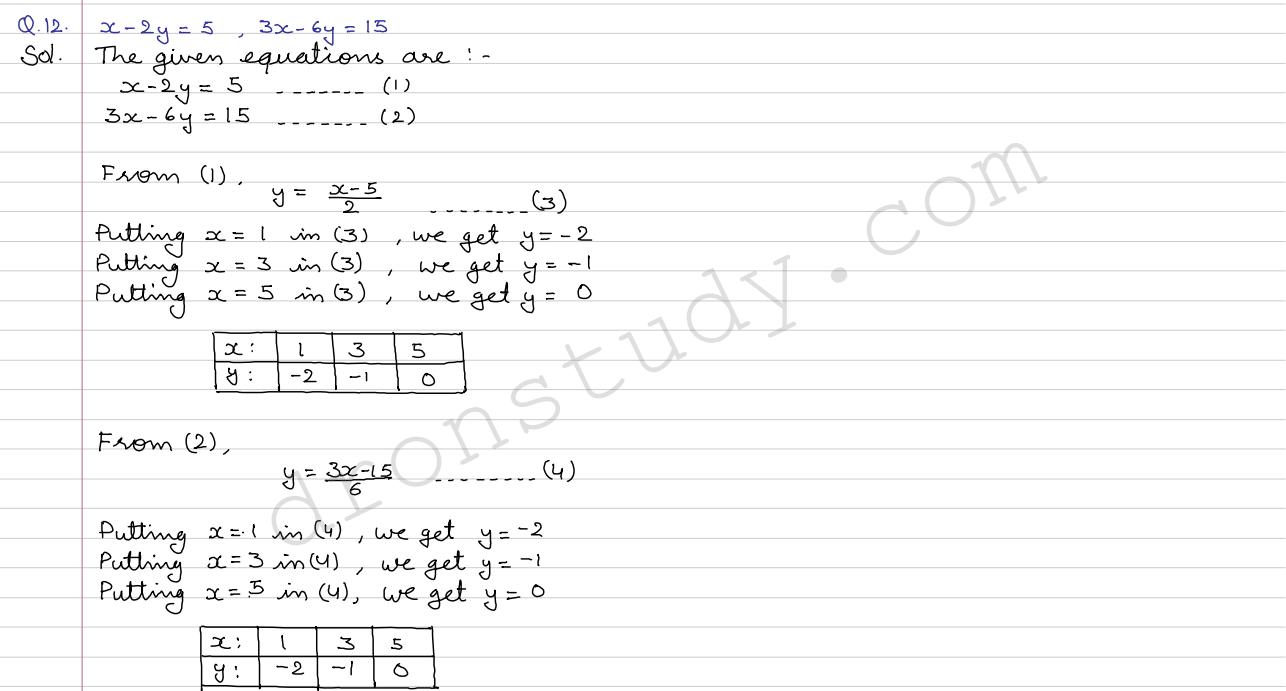 Q.12. x-2y = 5 , 3x-6y = 15
Sol. The given equations are :-
x-2y = 5 ------- (1)
3x-6y = 15 ------- (2)
From (1),
y = x-5/2 -------- (3)
Putting x = 1 in (3) , we get y = -2
Putting x = 3 in (3) , we get y = -1
Putting x = 5 in (3) , we get y = 0
x: 1 3 5
y: -2 -1 0
From (2),
y = 3x-15/6 --------- (4)
Putting x = 1 in (4) , we get y = -2
Putting x = 3 in (4) , we get y = -1
Putting x = 5 in (4), we get y = 0
x: 1 3 5
y: -2 -1 0
dronstudy.com